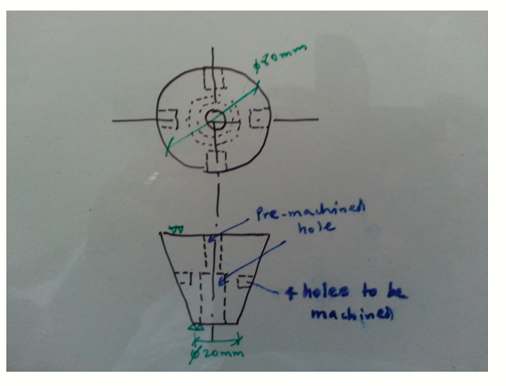 φ80mm
Pre-machined
hole
4 holes to be
machined
φ20mm